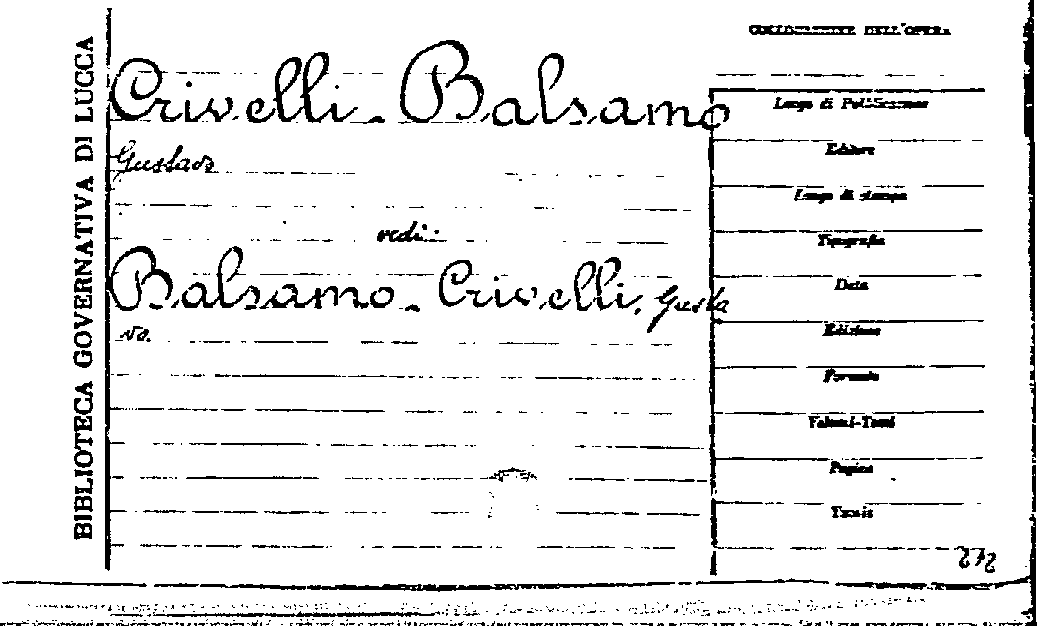 BIBLIOTECA GOVERNATIVA DI LUCCA
Crivelli-Balsamo
Gustavo
vedi:
Balsamo-Crivelli, Gusta
vo.
COLLOCAZIONE DELL'OPERA
Luogo di Pubblicazione
Editore
Luogo di stampa
Tipografia
Data
Edizione
Formato
Volumi-Tomi
Pagine